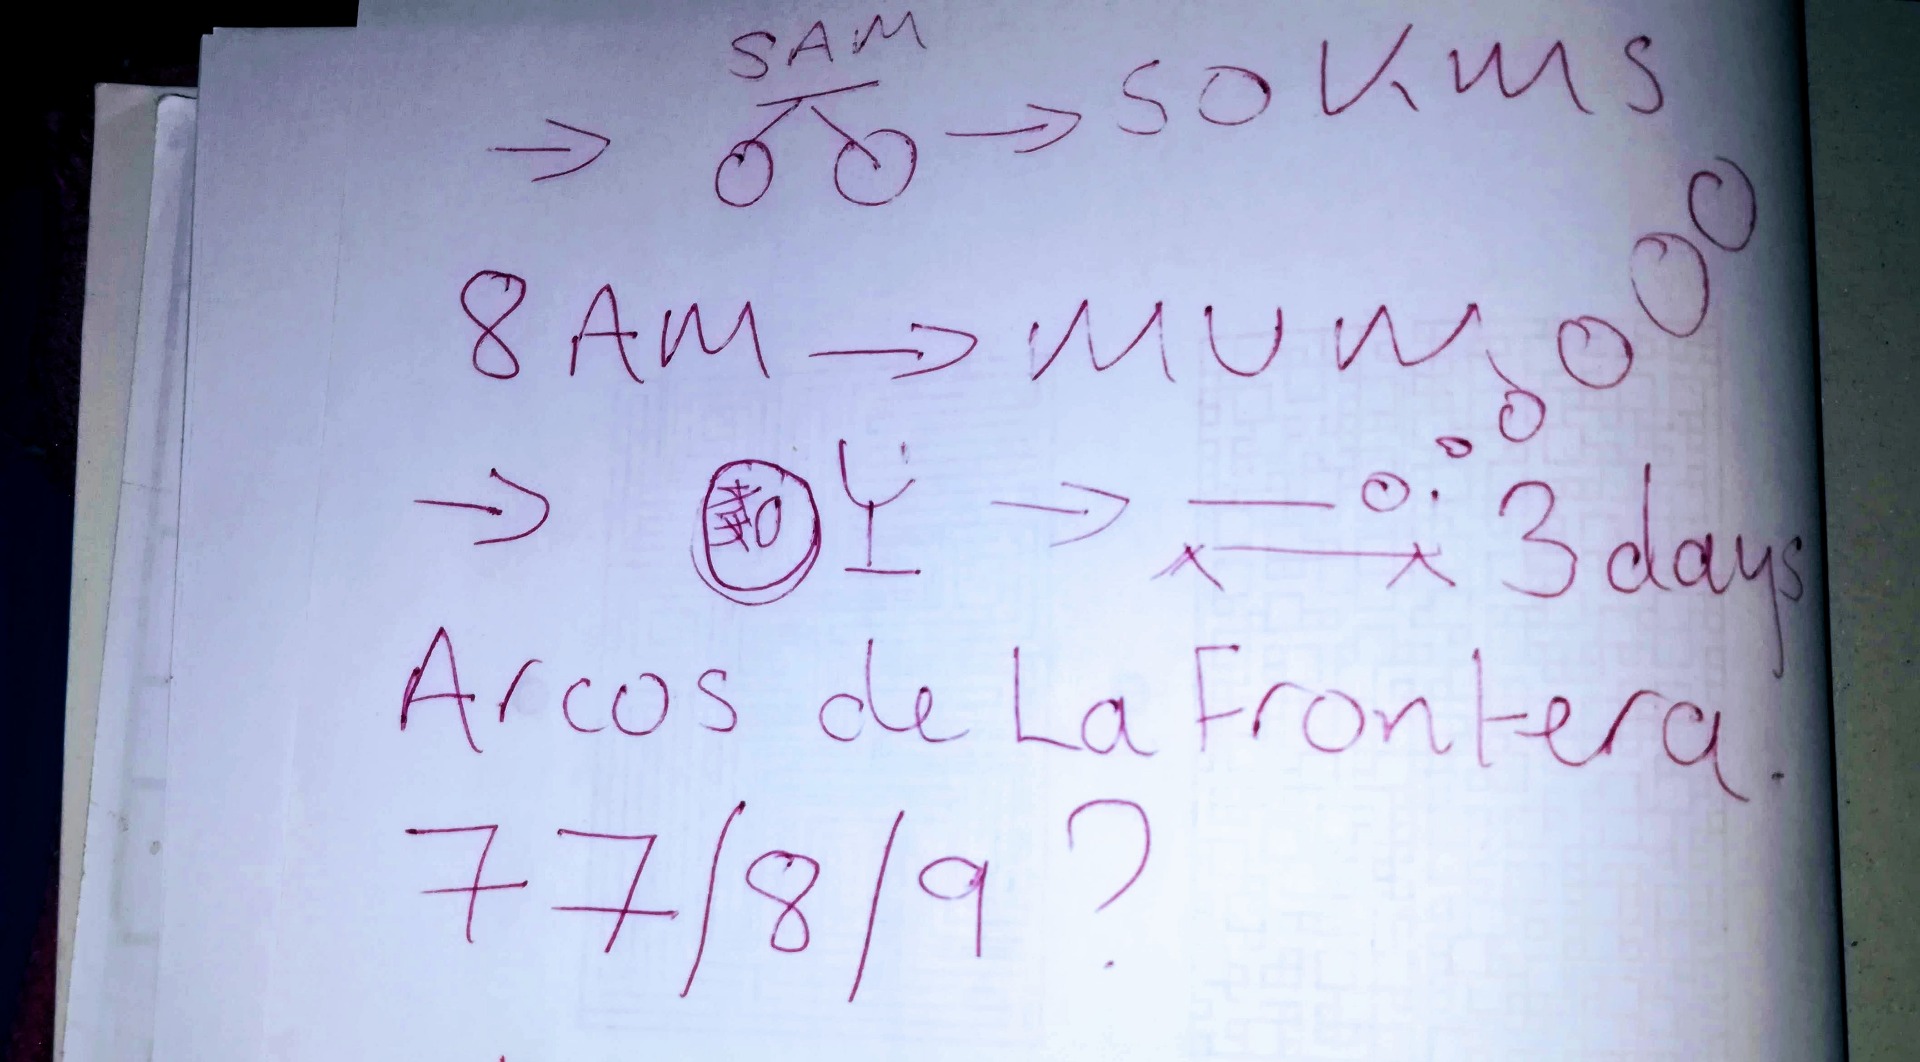 SAM
→ → 50 KMS
8 AM → MUM
→ → 3 days
Arcos de La Frontera.
77/8/9?